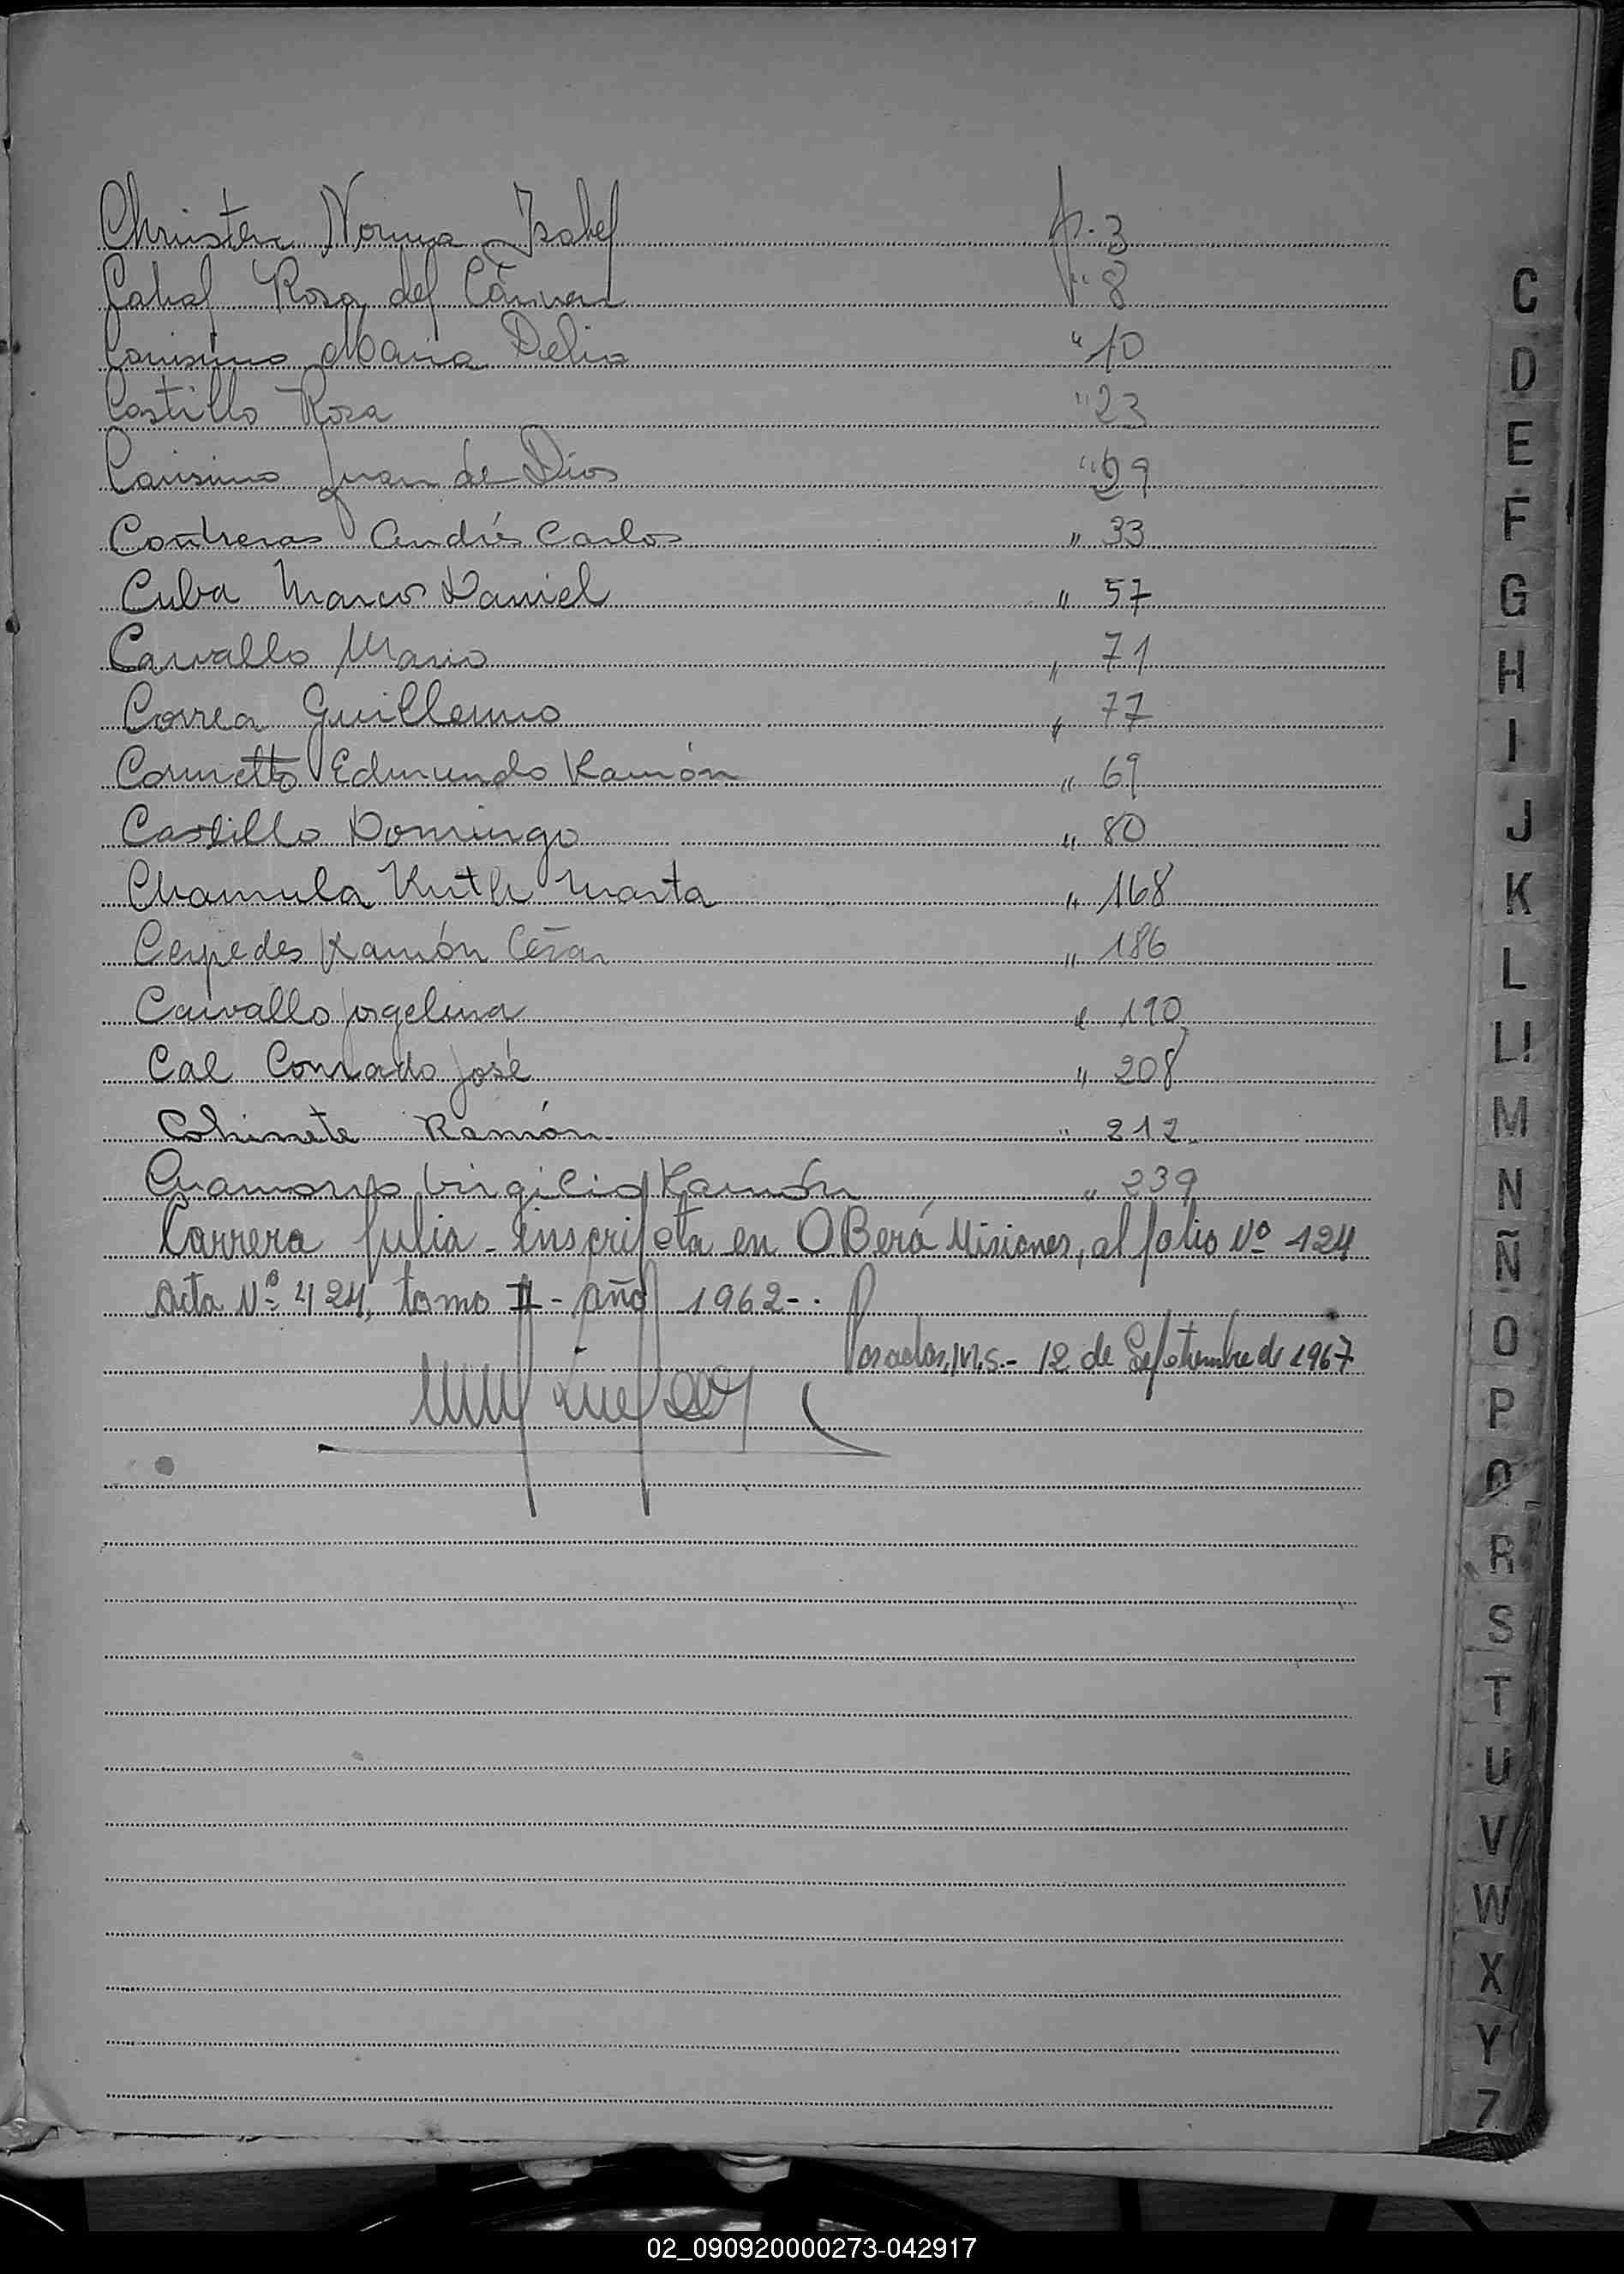 Christen Norma Isabel f. 3
Cabral Rosa del Cármen " 8
Carisimo Maria Delia " 10
Castillo Rosa " 23
Carisimo Juan de Dios " 29
Contreras Andrés Carlos " 33
Cuba Marcos Daniel " 57
Carvallo Mario " 71
Correa Guillermo " 77
Edmundo Ramón " 69
Castillo Domingo " 80
Chamula Ruth Marta " 168
Cespedes Ramón César " 186
Carvallo Jorgelina " 190
Cal Conrado José " 208
Ramón " 212
Virgilio Ramón " 239
Carrera Julia - inscripta en OBerá Misiones, al folio Nº 124
Acta Nº 424, tomo II - Año 1962-.
Posadas, M.S.- 12 de Septiembre de 1967
C
D
E
F
G
H
I
J
K
L
Ll
M
N
Ñ
O
P
Q
R
S
T
U
V
W
X
Y
Z
02_090920000273-042917